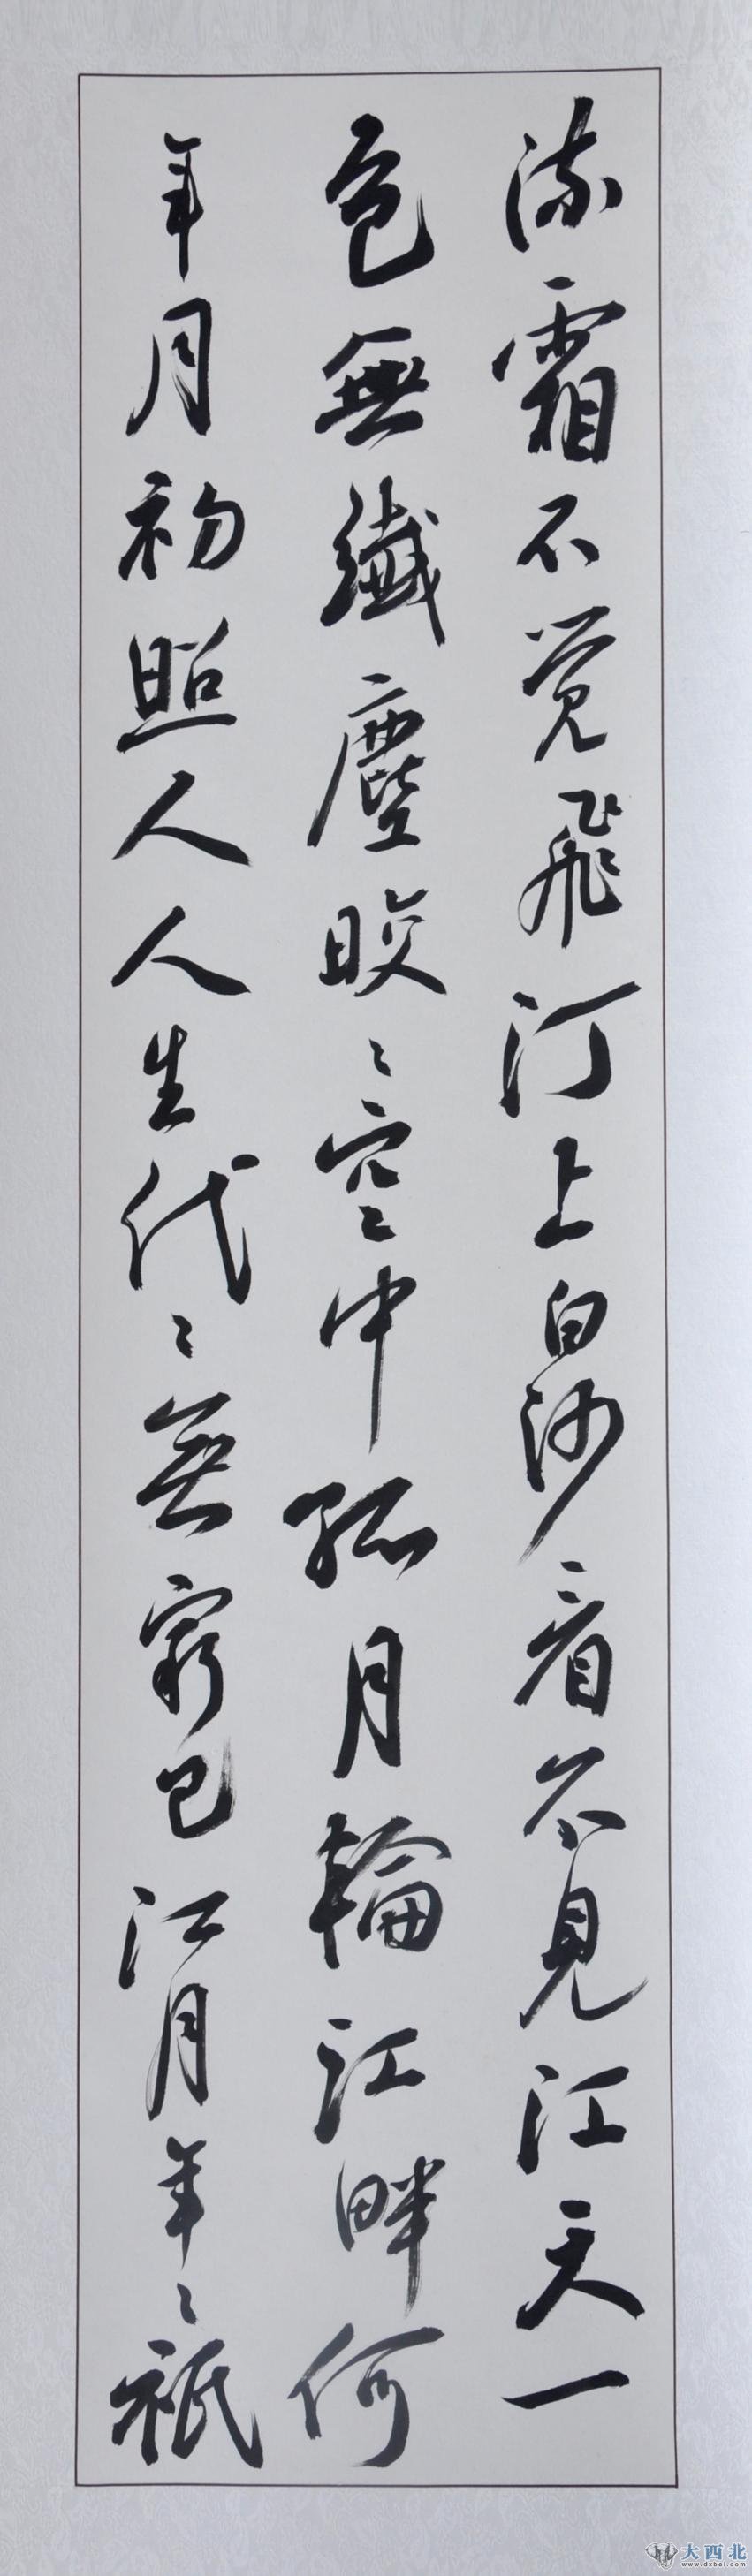 流霜不觉飛汀上白沙看不見江天一
色無纖塵皎〻空中孤月輪江畔何
年月初照人人生代〻無窮已江月年〻祇
大西北
www.dxbei.com